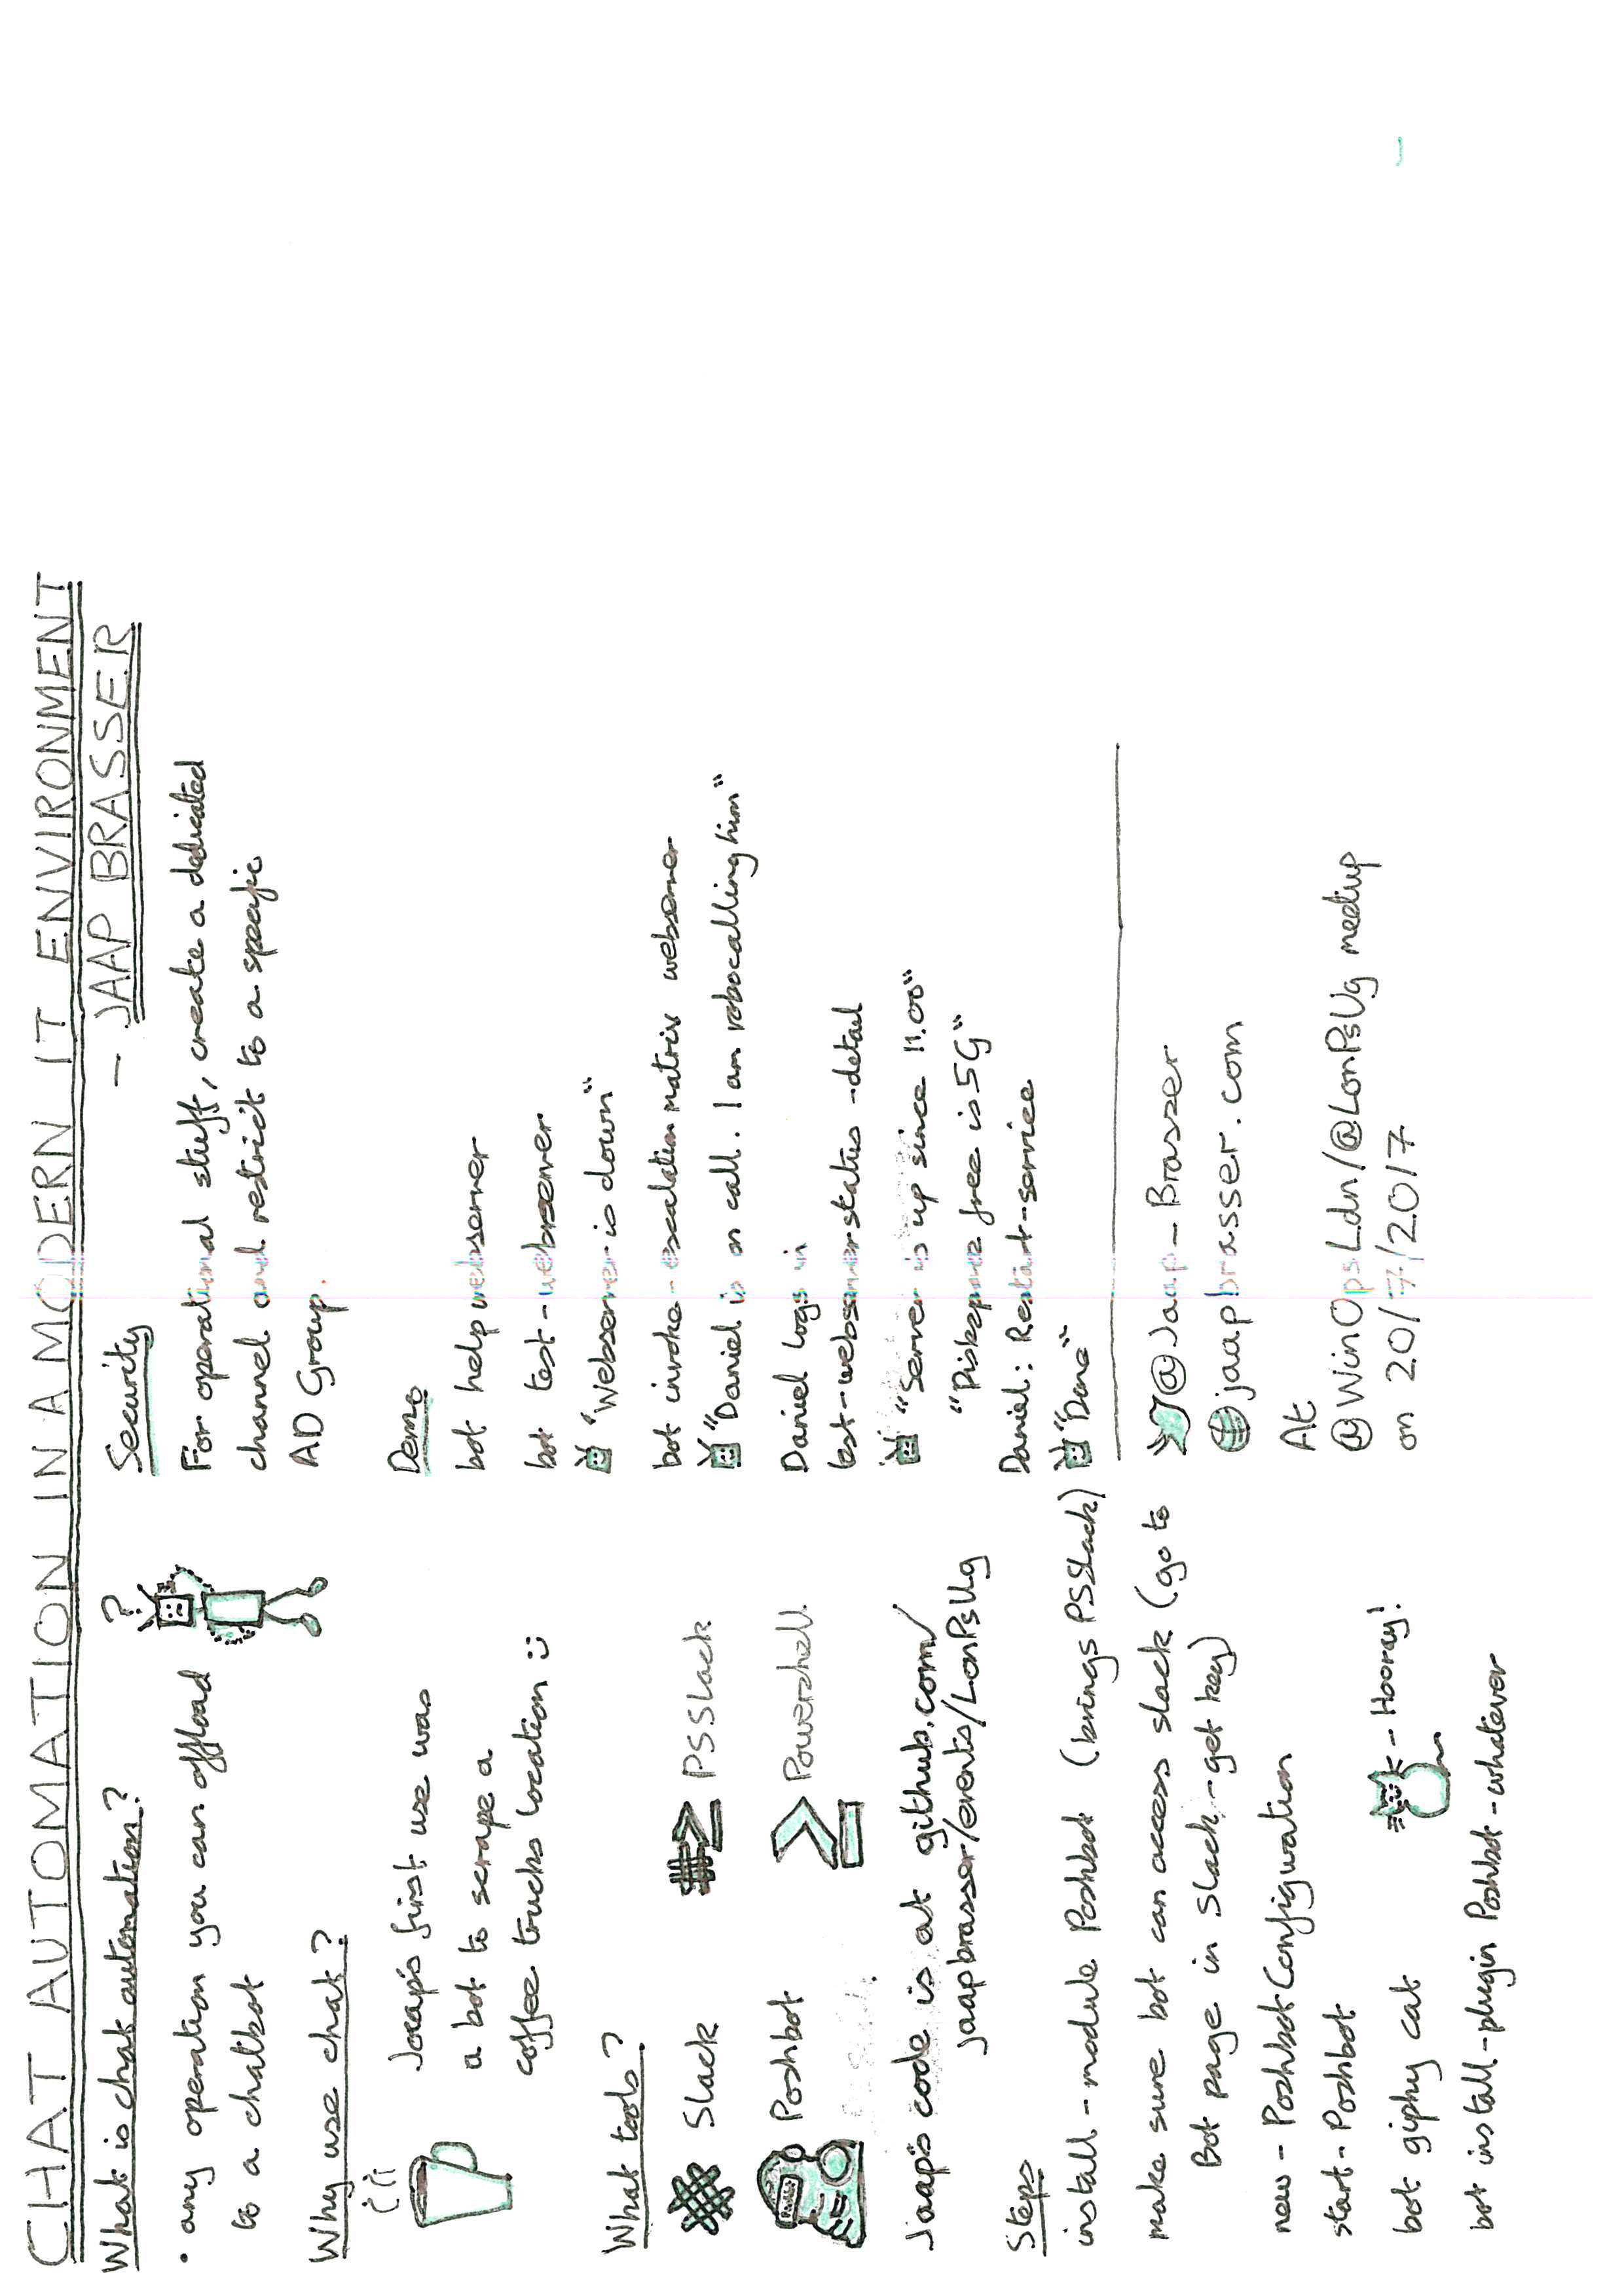 CHAT AUTOMATION IN A MODERN IT ENVIRONMENT
- JAAP BRASSER
What is chat automation?
• any operation you can offload
to a chatbot
?
Why use chat?
Jaap's first use was
a bot to scrape a
coffee trucks location :)
What tools?
Slack
#≥ PSSlack
Poshbot
Powershell
Jaap's code is at github.com/
jaapbrasser/events/LonPsUg
Steps
install-module Poshbot (brings PSSlack)
make sure bot can access slack (go to
Bot page in Slack - get key)
new-PoshbotConfiguration
start-Poshbot
bot giphy cat
- Hooray!
bot install-plugin Poshbot-whatever
Security
For operational stuff, create a dedicated
channel and restrict to a specific
AD Group.
Demo
bot help webserver
bot test-webserver
"Webserver is down"
bot invoke-escalation matrix webserver
"Daniel is on call. I am robocalling him"
Daniel logs in
test-webserverstatus -detail
"Server is up since 11.00"
"Diskspace free is 5G"
Daniel: Restart-service
"Done"
@Jaap_Brasser
jaapbrasser.com
At
@WinOpsLdn/@LonPsUg meetup
on 20/7/2017